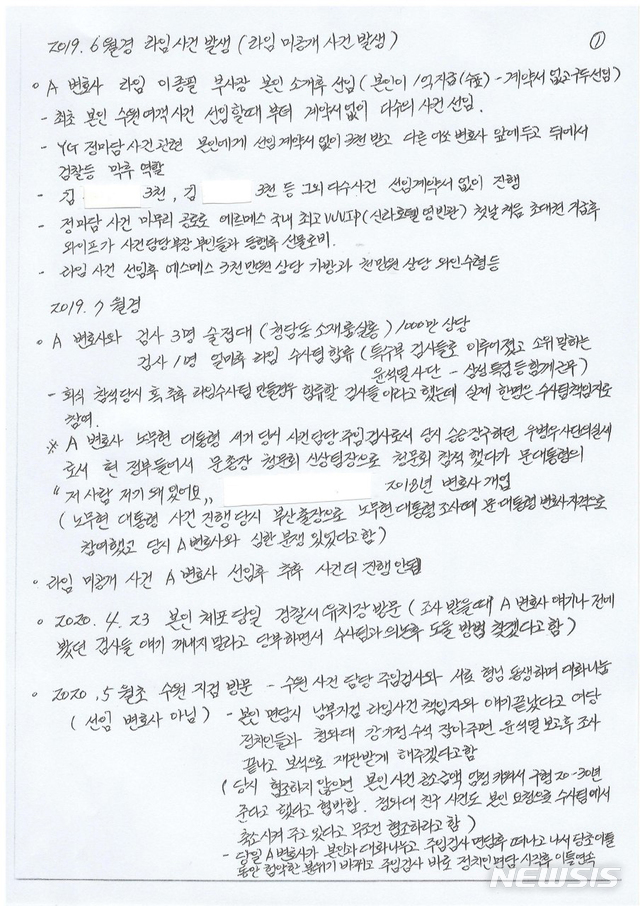 2019. 6월경 라임사건 발생 (라임 미공개 사건 발생) ①
○ A 변호사 라임 이종필 부사장 본인 소개후 선임 (본인이 1억지급(수표) - 계약서 없고 구두선임)
- 최초 본인 수원여객 사건 선임할때 부터 계약서없이 다수의 사건 선임.
- YG 정마담 사건 관련 본인에게 선임계약서 없이 3천 받고 다른 여쏘 변호사 앞에두고 뒤에서
검찰등 막후 역할
- 김 3천, 김 3천 등 그외 다수사건 선임계약서 없이 진행
- 정마담 사건 마무리 공로로 에르메스 국내 최고 VVVIP (신라호텔 영빈관) 첫날 처음 초대권 지급후
와이프가 사건담당부장 부인들과 동행후 선물로비.
- 라임 사건 선임후 에르메스 3천만원 상당 가방과 천만원 상당 와인수령등
2019. 7월경
○ A 변호사와 검사 3명 술접대 (청담동 소재 룸싸롱) 1000만 상당
검사 1명 얼마후 라임 수사팀 합류 (특수부 검사들로 이루어졌고 소위 말하는
윤석열 사단 - 삼성 특검 등 함께 근무)
- 회식 참석당시 혹, 추후 라임수사팀 만들경우 합류할 검사들이라고 했는데 실제 한명은 수사팀책임자로
참여.
※ A 변호사 노무현 대통령 서거 당시 사건 담당 주임검사로서 당시 승승장구하던 우병우사단의 실세
로서 현 정부들어서 문총장 청문회 신상팀장으로 청문회 참석 했다가 문대통령의
"저 사람 저기 왜 있어요,, 2018년 변호사 개업
(노무현 대통령 사건 진행당시 부산출장으로 노무현대통령조사때 문대통령 변호사자격으로
참여했고 당시 A변호사와 심한 분쟁 있었다고 함)
○ 라임 미공개 사건 A 변호사 선임후 추후 사건 더 진행 안됨
○ 2020. 4. 23 본인 체포 당일 경찰서 유치장 방문 (조사 받을때 A 변호사 얘기나 전에
봤던 검사들 얘기 꺼내지 말라고 당부하면서 수사팀과 의논후 도울 방법 찾겠다고 함)
○ 2020. 5월초 수원 지검 방문 - 수원 사건 담당 주임검사와 서로 형님 동생하며 대화나눔
(선임 변호사 아님) - 본인 면담시 남부지검 라임사건 책임자와 얘기끝났다고 여당
정치인들과 청와대 강기정 수석 잡아주면 윤석열 보고후 조사
끝나고 보석으로 재판받게 해주겠다고함
(당시 협조하지 않으면 본인 사건 공소금액 엄청 키워서 구형 20-30년
준다고 했다고 협박함. 청와대 친구 사건도 본인 요청으로 수사팀에서
축소시켜 주고 있다고 무조건 협조하라고 함)
- 당일 A변호사가 본인과 대화나누고 주임검사 면담후 떠나고 나서 당초 이틀
동안 험악한 분위기 바뀌고 주임검사 바로 정치인면담 시작후 이틀연속
NEWSIS